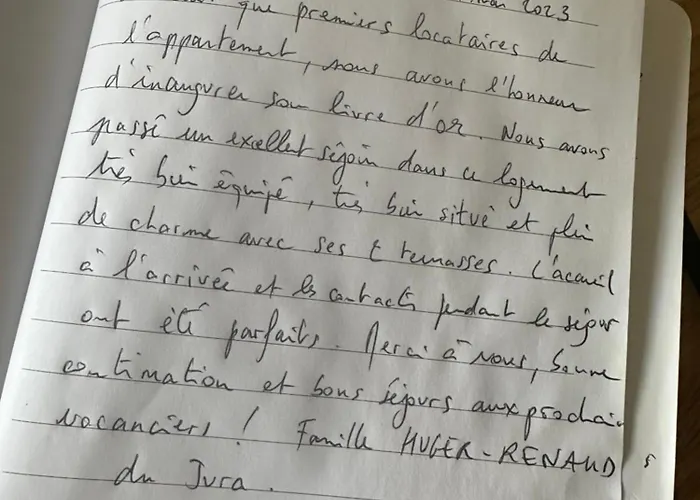 2023
que premiers locataires de
l'appartement, nous avons l'honneur
d'inaugurer son livre d'or. Nous avons
passé un excellet séjoin dans ce logement
très bien équipé, très bien situé et plein
de charme avec ses t terrasses. L'acueil
à l'arrivée et les contacts pendant le séjour
ont été parfaits. Merci à vous, bonne
continuation et bons séjours aux prochai
vacanciers ! Famille HUGER-RENAUD
du Jura.